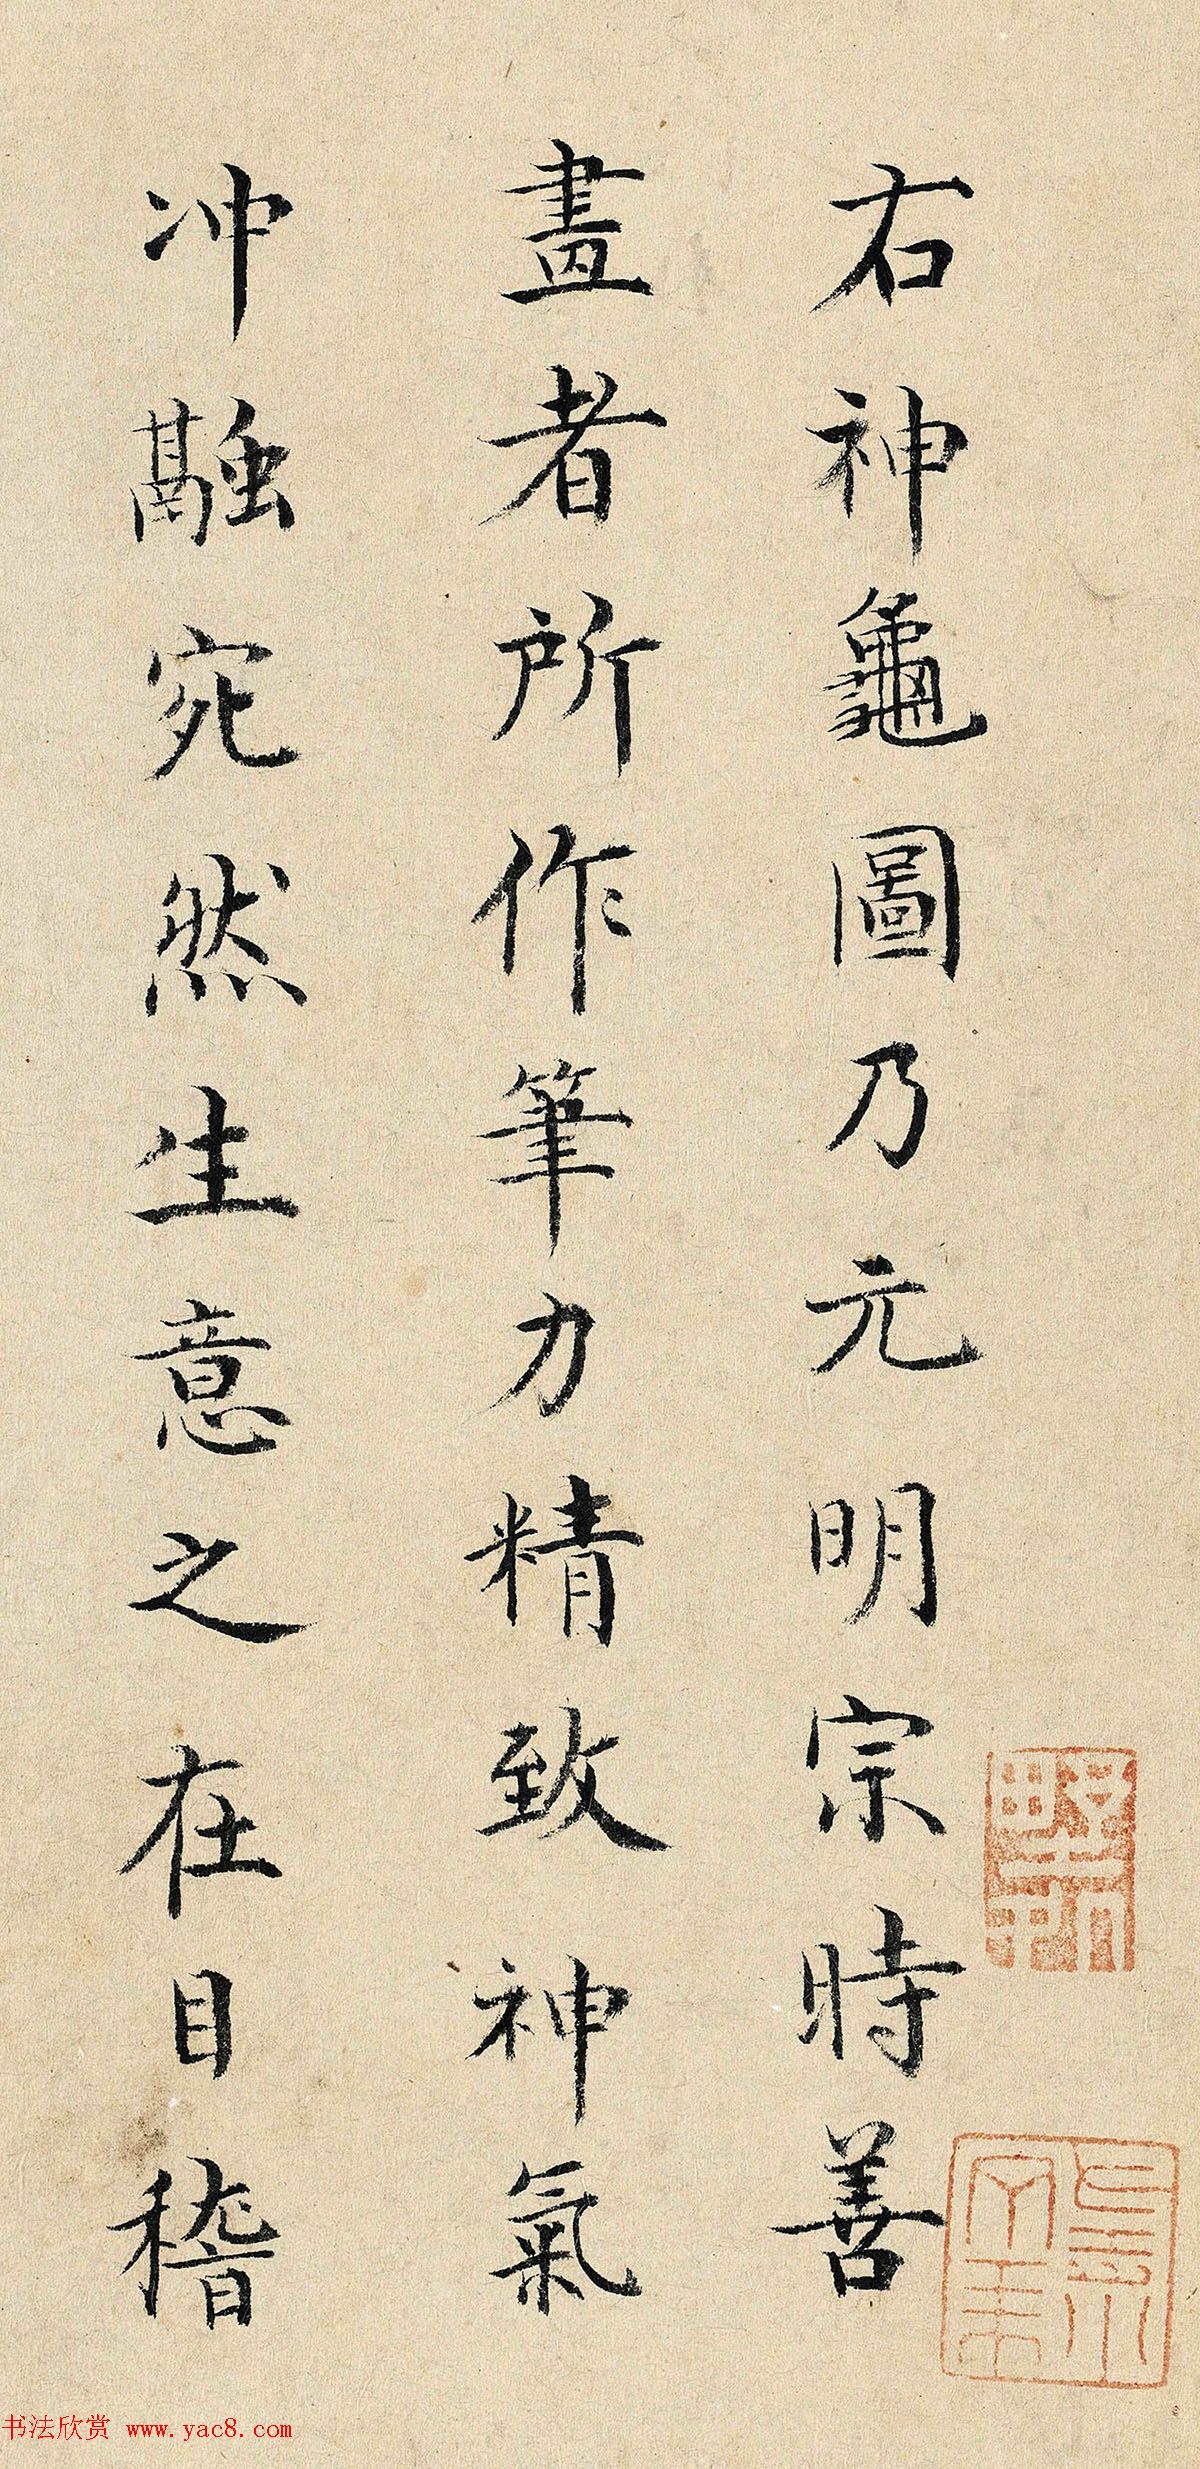 右神龜圖乃元明宗時善
畫者所作筆力精致神氣
冲融宛然生意之在目稽
书法欣赏 www.yac8.com